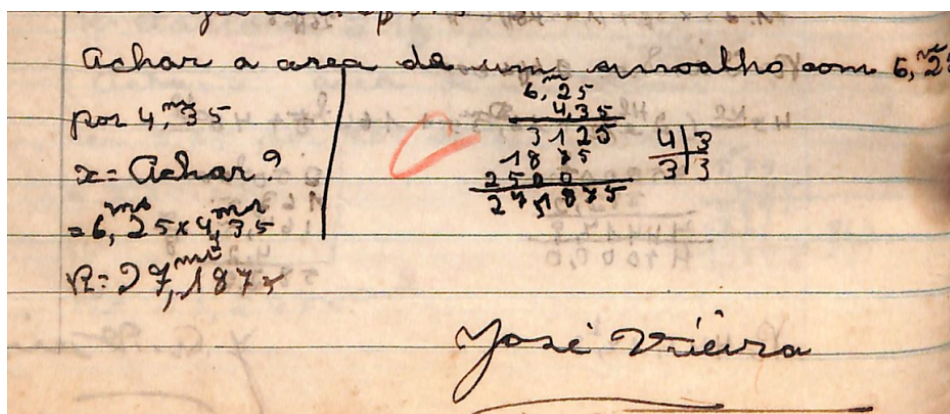 Achar a area de um assoalho com 6,ᵐ25
por 4,ᵐ35
x = Achar?
= 6,ᵐ25 x 4,ᵐ35
R = 27,ᵐ²1875
6,ᵐ25
4,35
3125
1875
2500
27,1875
4 | 3
3 | 3
José Vieira